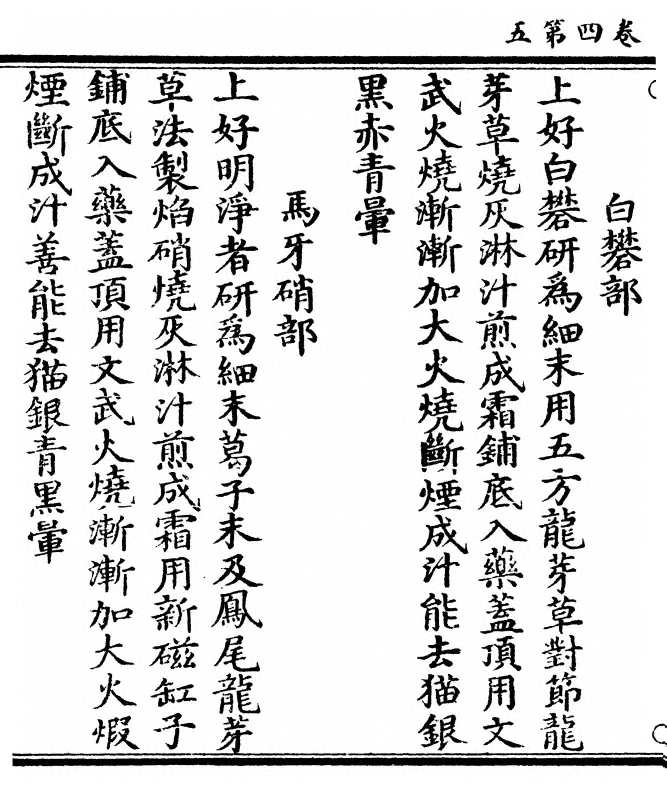 卷四第五
白礬部
上好白礬研爲細末用五方龍芽草對節龍
芽草燒灰淋汁煎成霜鋪底入藥蓋頂用文
武火燒漸漸加大火燒斷煙成汁能去猫銀
黑赤青暈
馬牙硝部
上好明淨者研爲細末葛子末及鳳尾龍芽
草法製焰硝燒灰淋汁煎成霜用新磁缸子
鋪底入藥蓋頂用文武火燒漸漸加大火煆
煙斷成汁善能去猫銀青黑暈